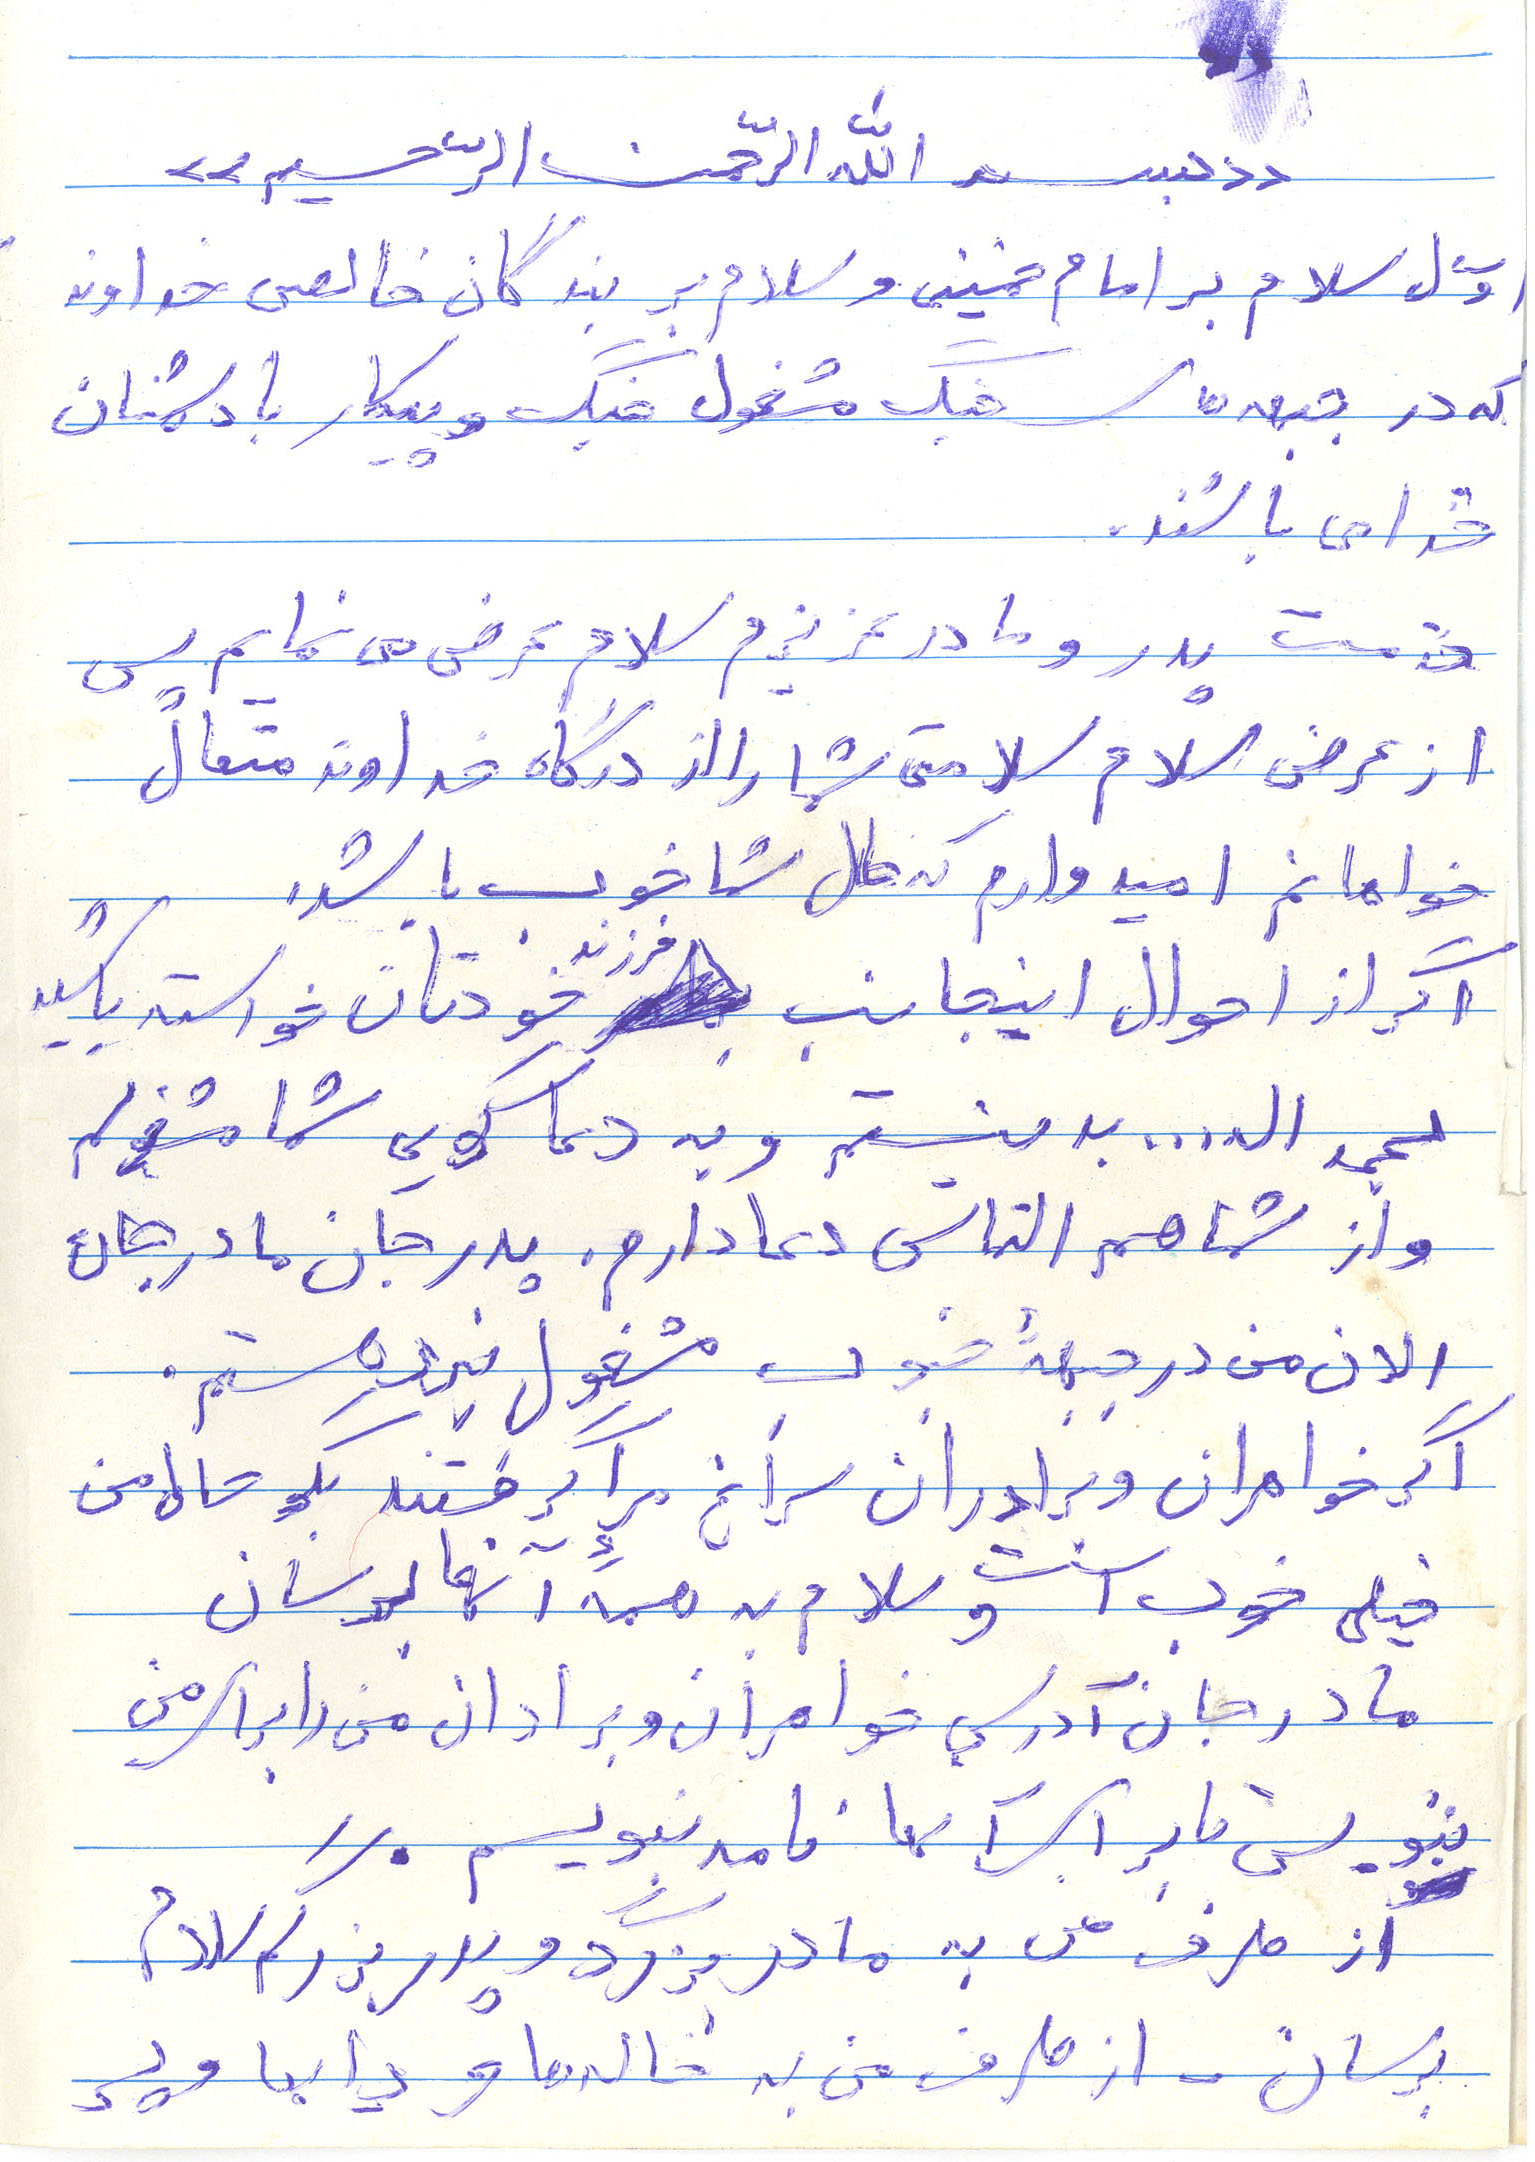 «بسم الله الرّحمن الرّحیم»
اوّل سلام بر امام خمینی و سلام بر بندگان خالص خداوند
که در جبهه های جنگ مشغول جنگ و پیکار با دشمنان
خدا می باشند.
خدمت پدر و مادر عزیزم سلام عرض می نمایم پس
از عرض سلام سلامتی شما را از درگاه خداوند متعال
خواهانم امیدوارم که حال شما خوب باشد.
اگر از احوال اینجانب فرزند خودتان خواسته باشید
بحمد اله... بد نیستم و به دعا گویی شما مشغولم
و از شما هم التماس دعا دارم. پدر جان مادر جان
الان من در جبههٔ خوب مشغول نبرد هستم.
اگر خواهران و برادران سراغ مرا گرفتند بگو حال من
خیلی خوب است و سلام به همهٔ آنها برسان
مادر جان آدرس خواهران و برادان من را برای من
بنویس تا برای آنها نامه بنویسم.//
از طرف من به مادر بزرگ و پدر بزرگم سلام
برسان - از طرف من به خاله ها و دایها و